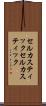 セルカスティ
ックセルカス
ティック